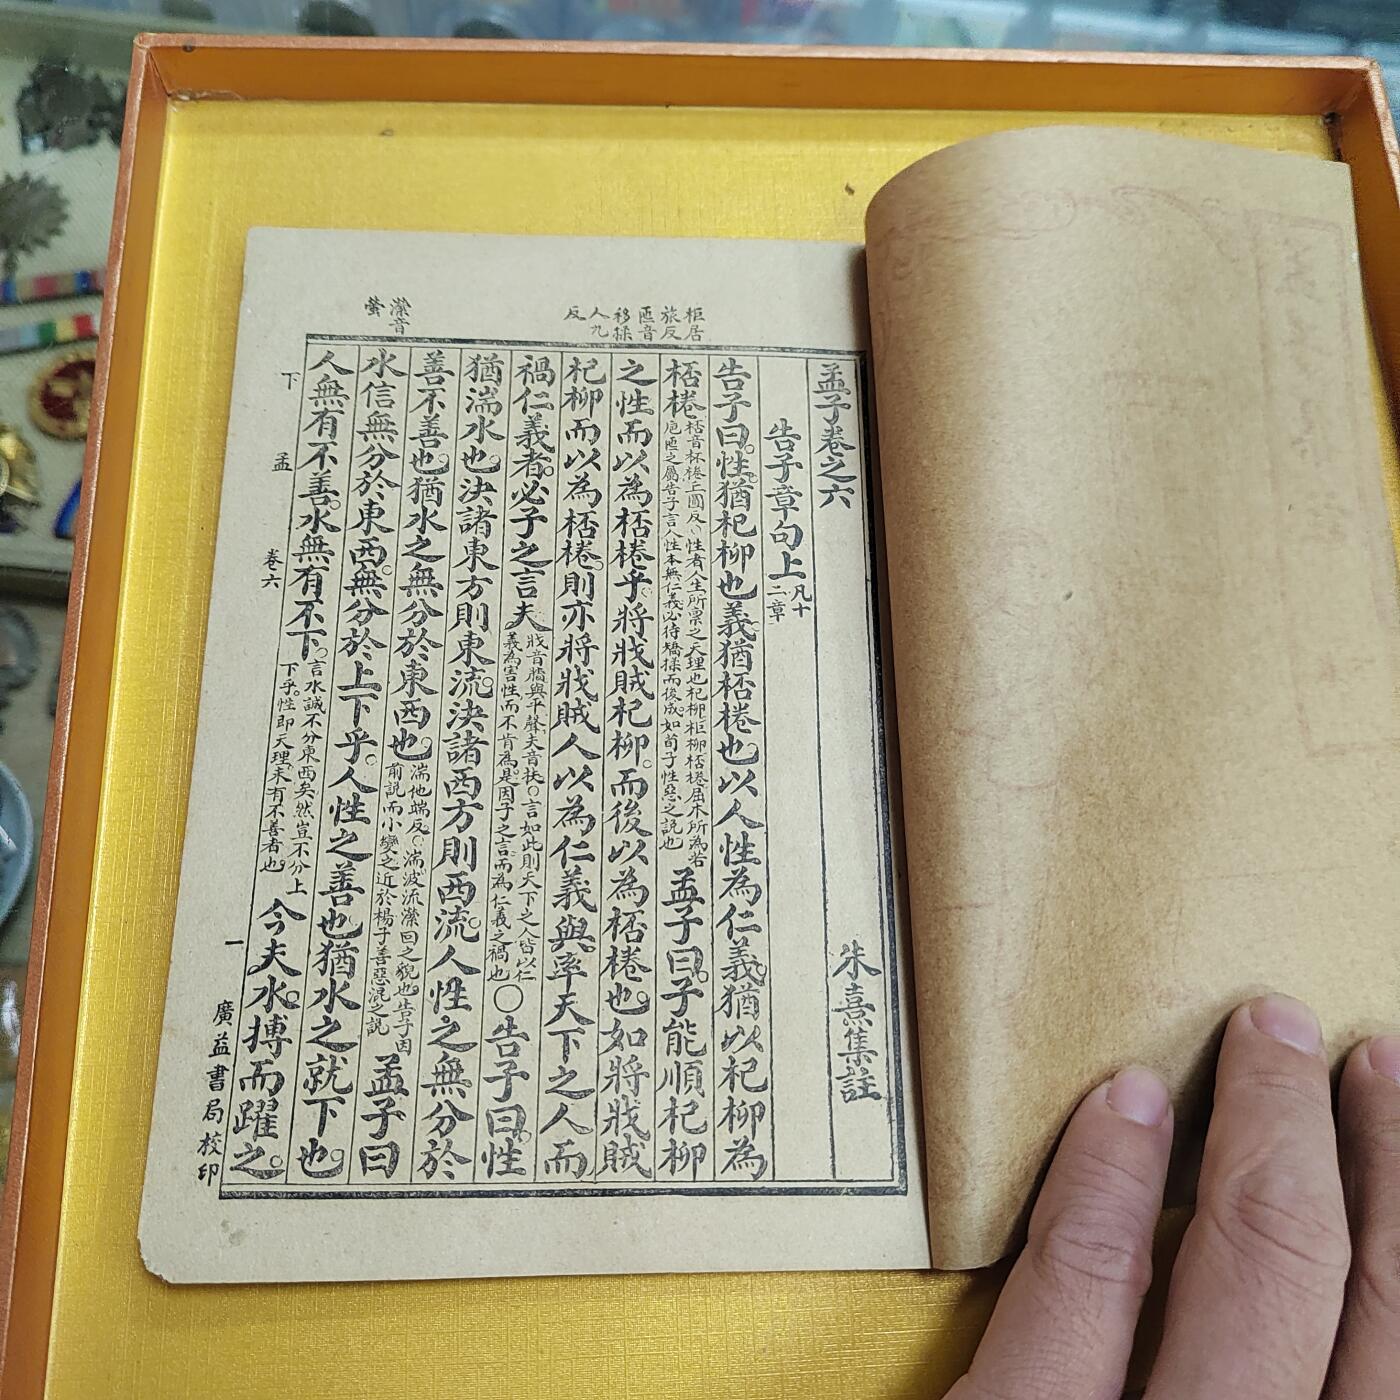 孟子卷之六
朱熹集註
告子章句上凡十二章
告子曰性猶杞柳也義猶桮棬也以人性為仁義猶以杞柳為
桮棬桮音杯棬上圓反○性者人生所禀之天理也杞柳柜柳桮棬屈木所為若
巵匜之屬告子言人性本無仁義必待矯揉而後成如荀子性惡之說也孟子曰子能順杞柳
之性而以為桮棬乎將戕賊杞柳而後以為桮棬也如將戕賊
杞柳而以為桮棬則亦將戕賊人以為仁義與率天下之人而
禍仁義者必子之言夫戕音牆與平聲夫音扶○言如此則天下之人皆以仁
義為害性而不肯為是因子之言而為仁義之禍也○告子曰性
猶湍水也決諸東方則東流決諸西方則西流人性之無分於
善不善也猶水之無分於東西也湍他端反○湍波流瀠回之貌也告子因
前說而小變之近於楊子善惡混之說孟子曰
水信無分於東西無分於上下乎人性之善也猶水之就下也
人無有不善水無有不下言水誠不分東西矣然豈不分上
下乎性即天理未有不善者也今夫水搏而躍之
柜居
旅反
匜音
移揉
人九
反
瀠音
螢
下
孟
卷六
一
廣益書局校印